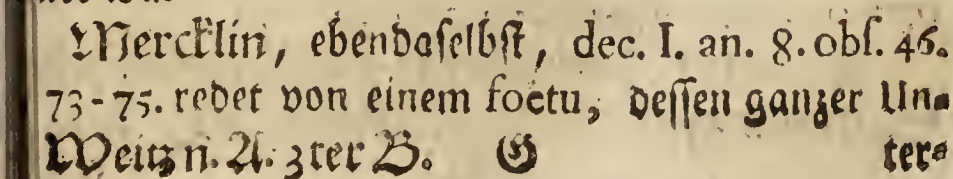 Mercklin, ebendaselbst, dec. I. an. 8. obs. 46.
73-75. redet von einem foetu, dessen ganzer Un-
Weitz n. A. 3ter B. G ter-